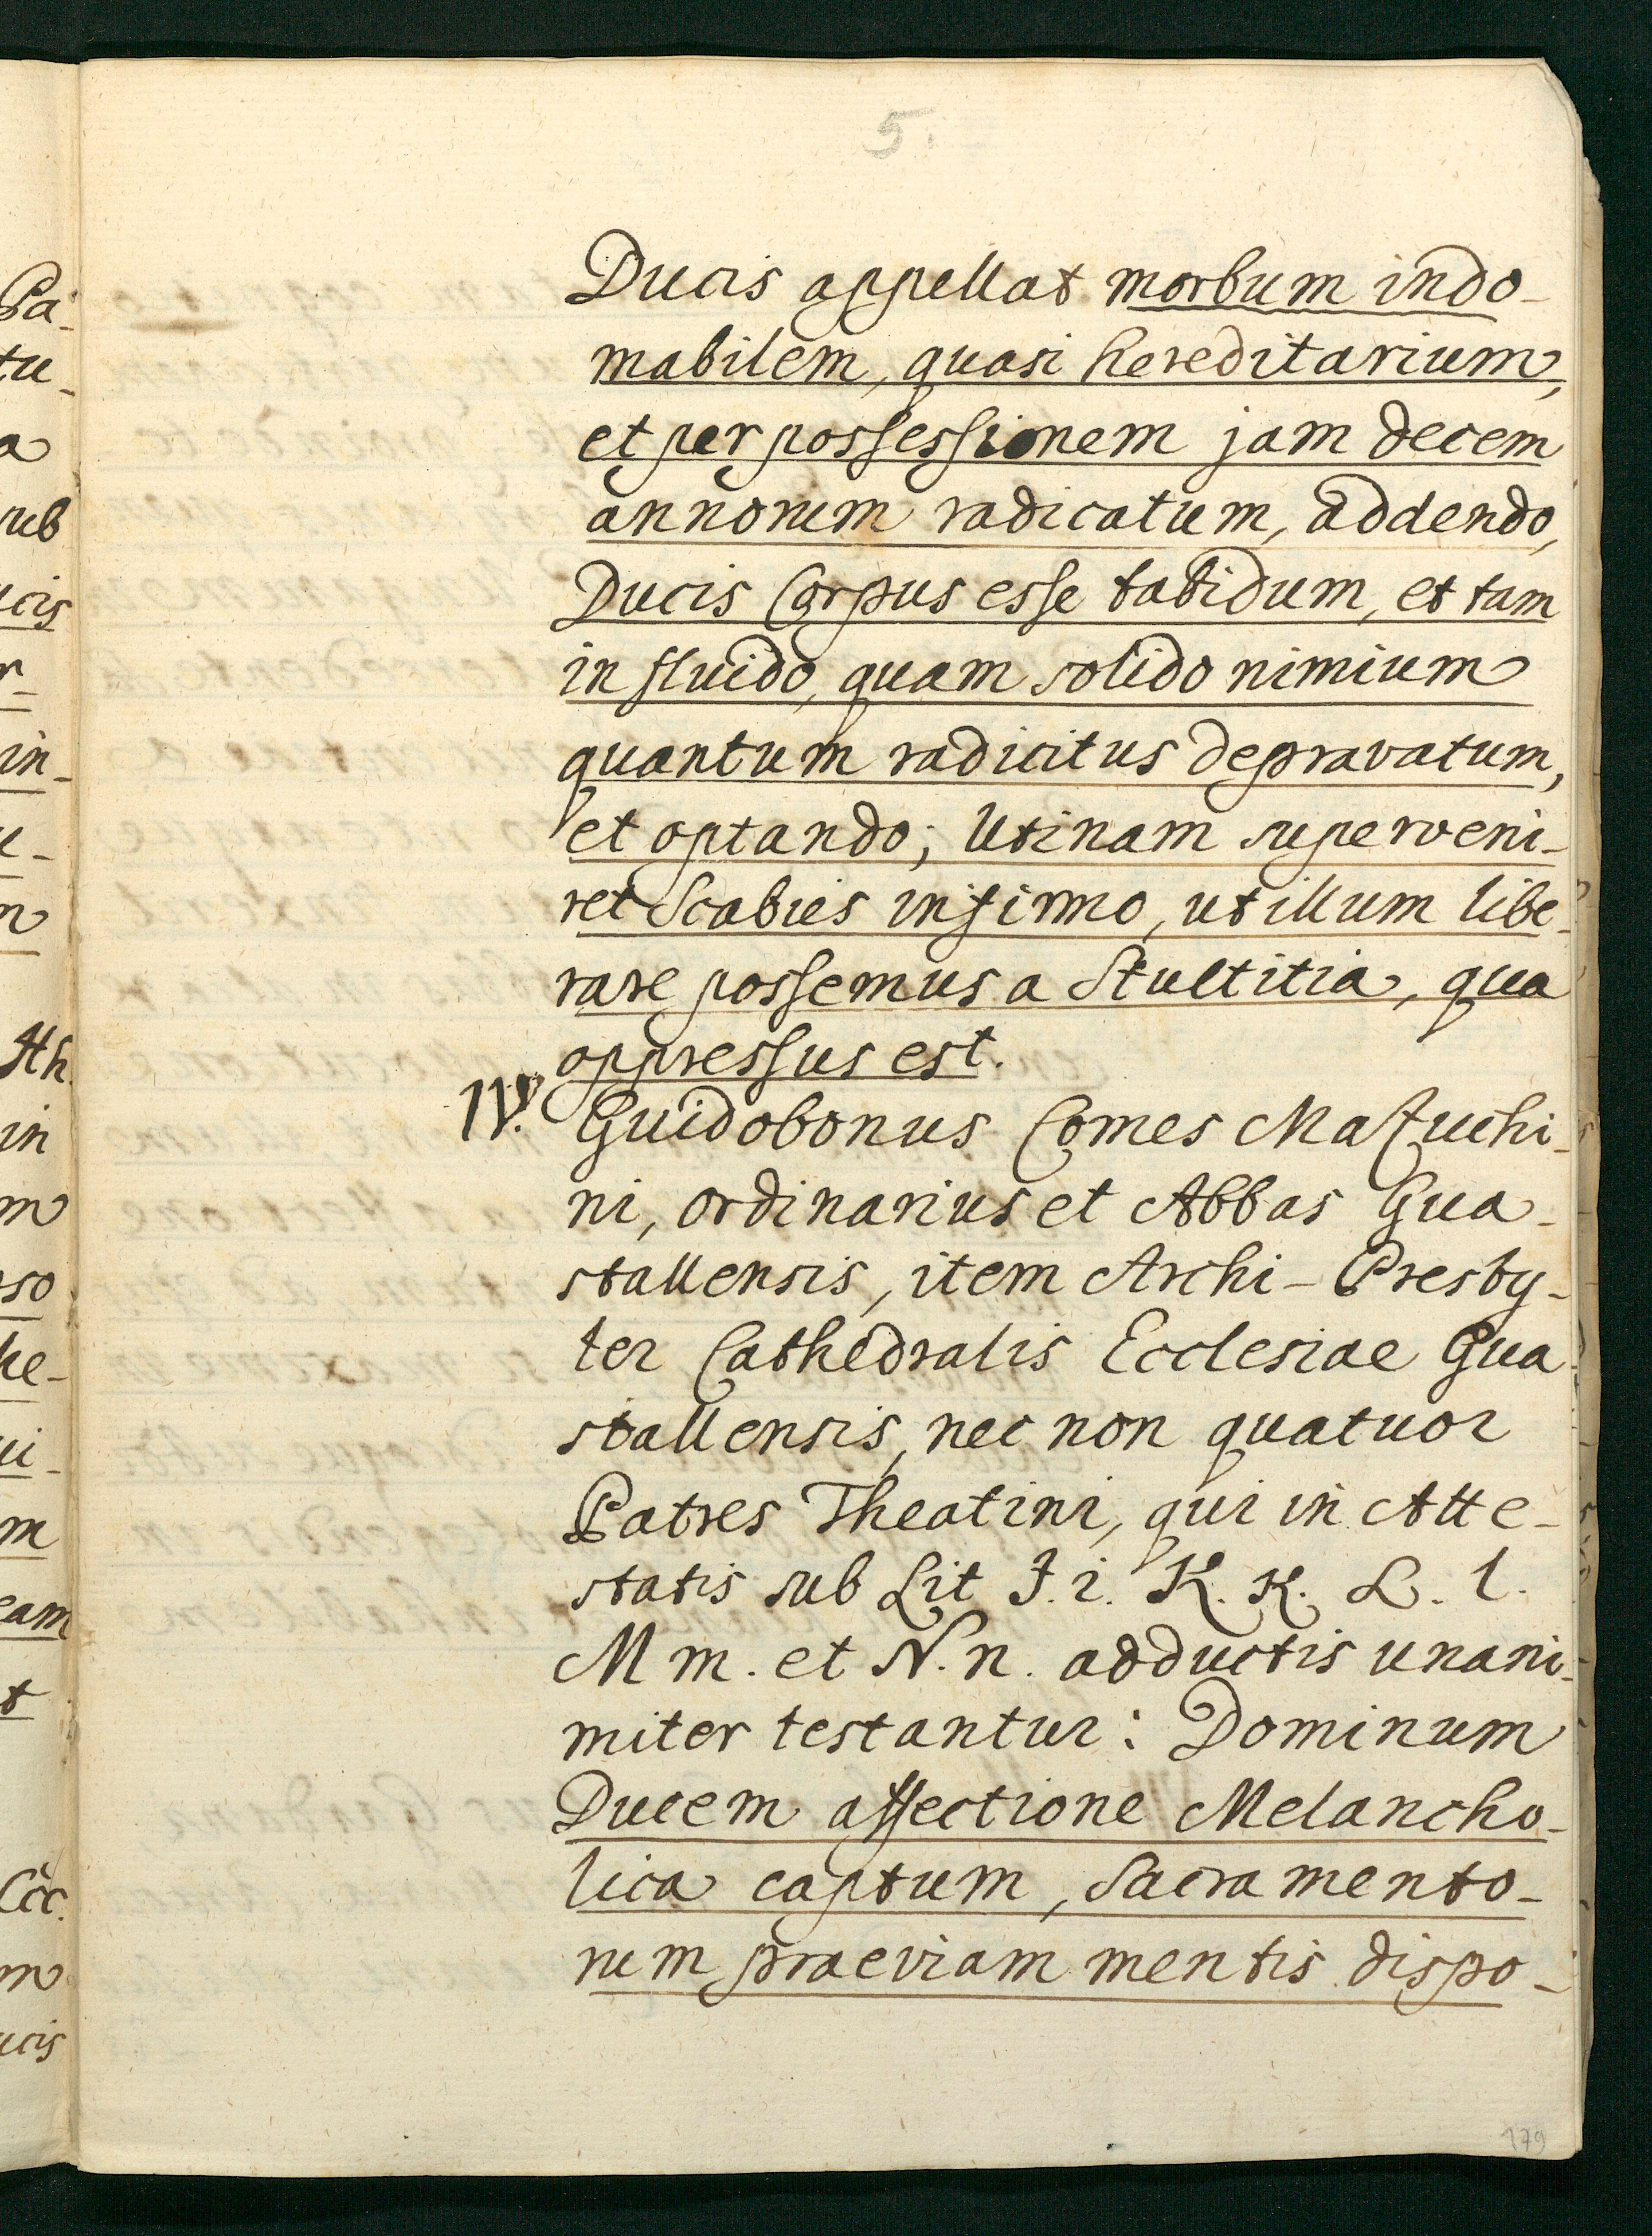 5.
Ducis appellat morbum indo-
mabilem, quasi hereditarium,
et per possessionem jam decem
annorum radicatum, addendo,
Ducis Corpus esse tabidum, et tam
in fluido, quam solido nimium
quantum radicitus depravatum,
et optando; Utinam superveni-
ret Scabies infirmo, ut illum libe-
rare possemus a Stultitia, qua
oppressus est.
IV. Guidobonus Comes Mazuchi-
ni, ordinarius et Abbas Gua-
stallensis, item Archi-Presby-
ter Cathedralis Ecclesiae Gua-
stallensis, nec non quatuor
Patres Theatini, qui in Atte-
statis sub Lit J. i. K. K. L. l.
M m. et N. n. adductis unani-
miter testantur: Dominum
Ducem affectione Melancho-
lica captum, Sacramento-
rum praeviam mentis dispo-
179
Pa-
tu-
a
sub
ucis
r-
in-
e-
m
Ath.
in
m
oso
he-
ui-
m
eam
t
Coc.
m
ucis